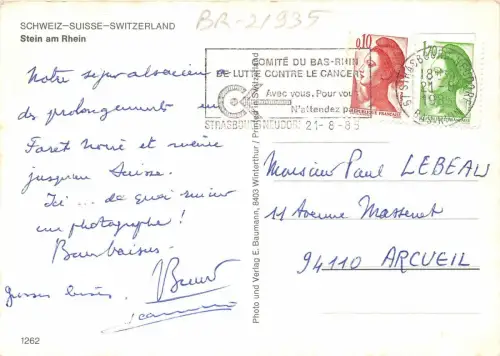 SCHWEIZ–SUISSE–SWITZERLAND
Stein am Rhein
BR-21935
COMITÉ DU BAS-RHIN
DE LUTTE CONTRE LE CANCER
Avec vous. Pour vous
N'attendez pas
STRASBOURG NEUDORF 21-8-85
0,10
1,70
Notre séjour alsacien a
des prolongements en
Foret Noire et meme
jusqu'en Suisse.
Ici ... de quoi
un photographe!
grosses bises
Monsieur Paul LEBEAU
11 Avenue Massenet
94110 ARCUEIL
Photo und Verlag E. Baumann, 8403 Winterthur / Printed in Switzerland
1262